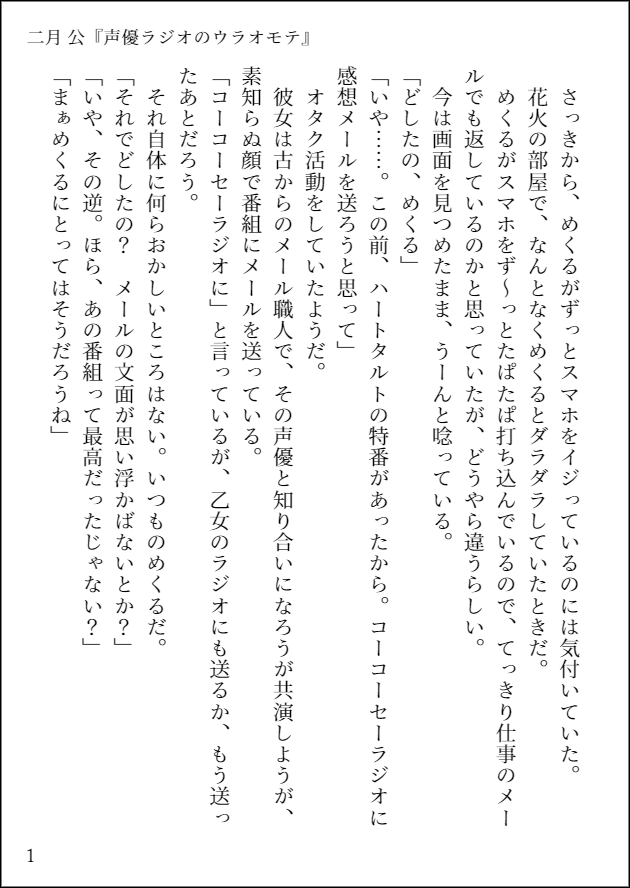 二月 公『声優ラジオのウラオモテ』
さっきから、めくるがずっとスマホをイジっているのには気付いていた。
花火の部屋で、なんとなくめくるとダラダラしていたときだ。
めくるがスマホをず〜っとたぱたぱ打ち込んでいるので、てっきり仕事のメー
ルでも返しているのかと思っていたが、どうやら違うらしい。
今は画面を見つめたまま、うーんと唸っている。
「どしたの、めくる」
「いや……。この前、ハートタルトの特番があったから。コーコーセーラジオに
感想メールを送ろうと思って」
オタク活動をしていたようだ。
彼女は古からのメール職人で、その声優と知り合いになろうが共演しようが、
素知らぬ顔で番組にメールを送っている。
「コーコーセーラジオに」と言っているが、乙女のラジオにも送るか、もう送っ
たあとだろう。
それ自体に何らおかしいところはない。いつものめくるだ。
「それでどしたの？　メールの文面が思い浮かばないとか？」
「いや、その逆。ほら、あの番組って最高だったじゃない？」
「まぁめくるにとってはそうだろうね」
1